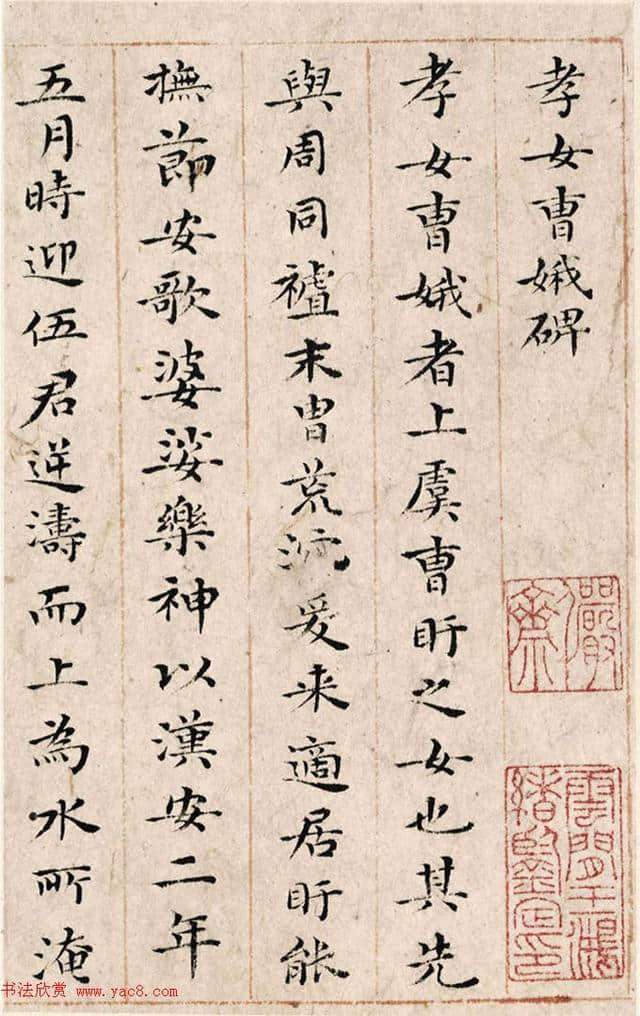 孝女曹娥碑
孝女曹娥者上虞曹盱之女也其先
與周同祖末胄荒流爰来適居盱能
撫節安歌婆娑樂神以漢安二年
五月時迎伍君逆濤而上為水所淹
儼齋
雲間王鴻緒鑒定印
书法欣赏 www.yac8.com